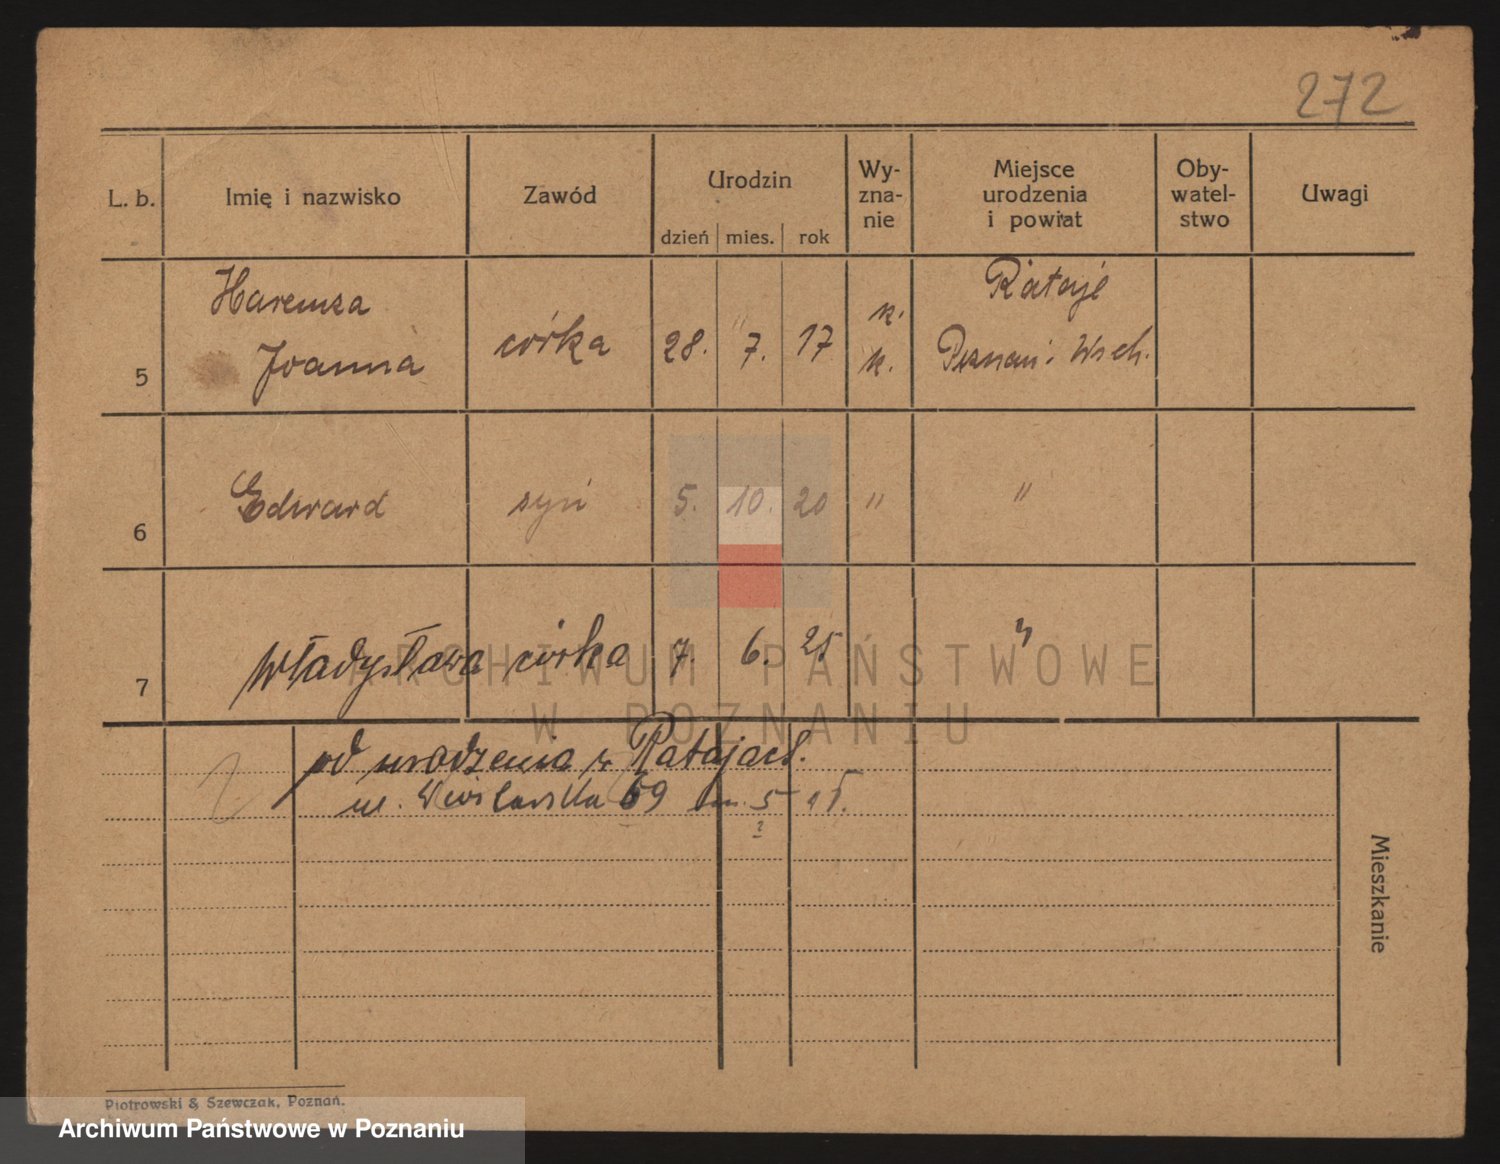 272
L. b.
Imię i nazwisko
Zawód
Urodzin
dzień mies. rok
Wy-
zna-
nie
Miejsce
urodzenia
i powiat
Oby-
watel-
stwo
Uwagi
5 Haremza
Joanna córka 28. 7. 17 k.
k. Rataje
Poznań. Wsch.
6 Edward syn 5. 10. 20 " "
7 Władysława córka 7. 6. 25 "
od urodzenia w Ratajach.
ul. 69 m. 5
?
Mieszkanie
Piotrowski & Szewczak, Poznań.
ARCHIWUM PAŃSTWOWE
W POZNANIU
Archiwum Państwowe w Poznaniu